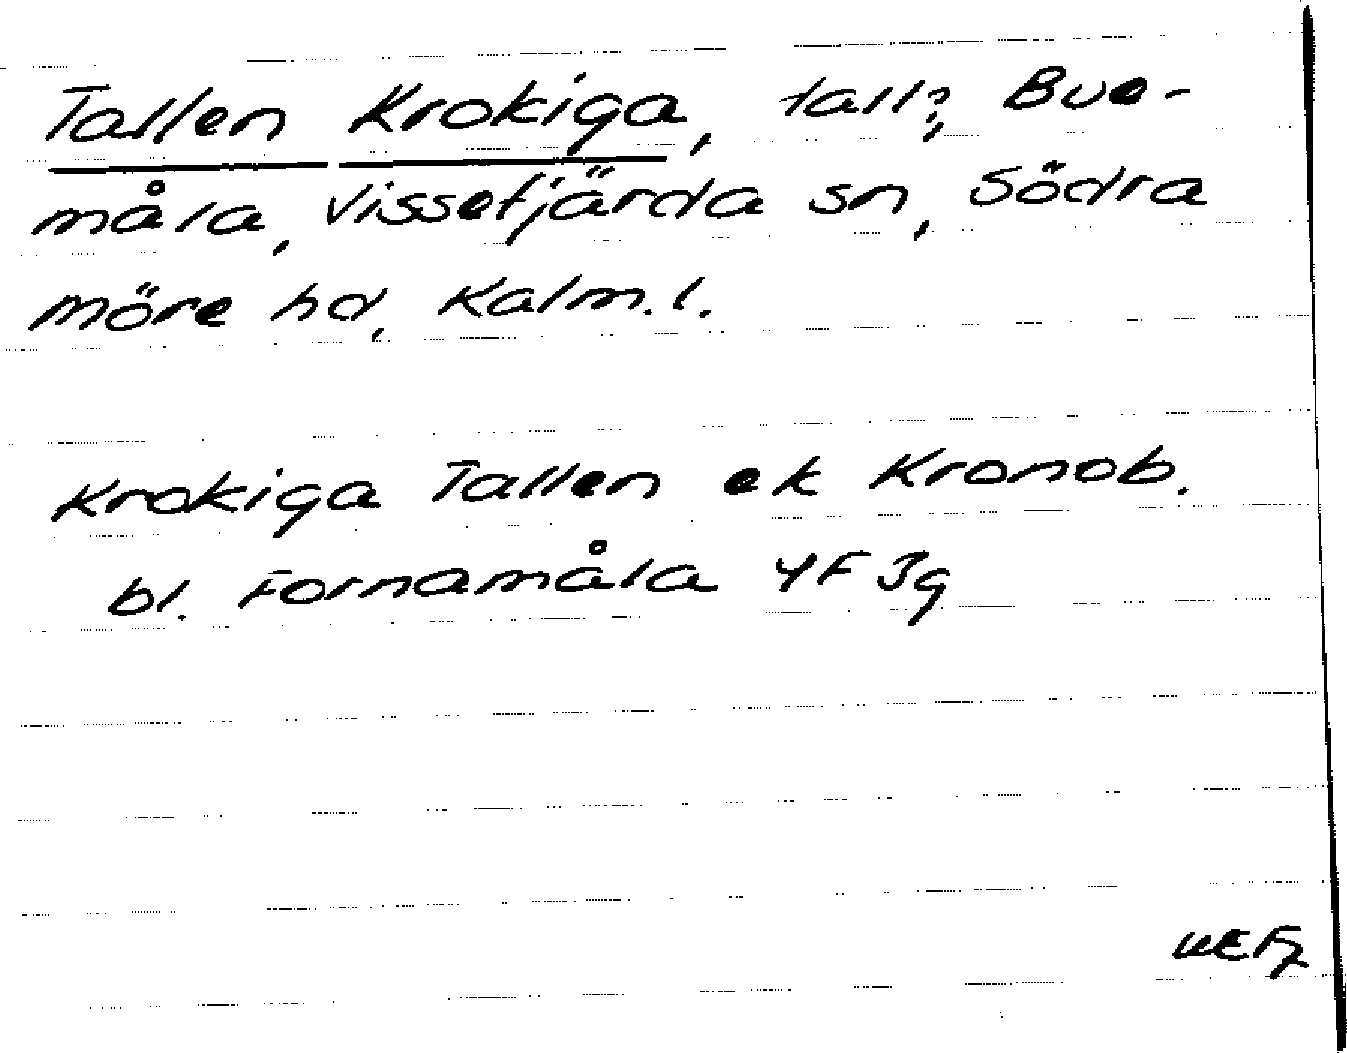 Tallen Krokiga, tall?, Bue-
måla, Vissefjärda sn, Södra
möre hd, Kalm. l.
Krokiga Tallen ek Kronob.
bl. Fornamåla 4F 3g